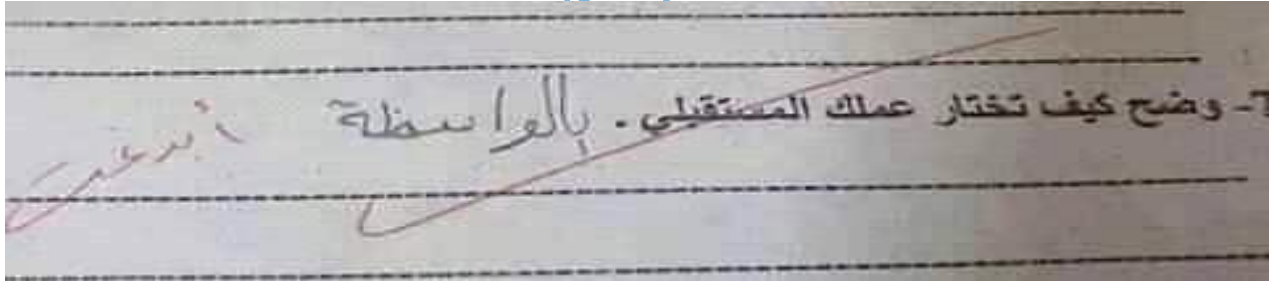 7- وضح كيف تختار عملك المستقبلي. بالواسطة أبدعت